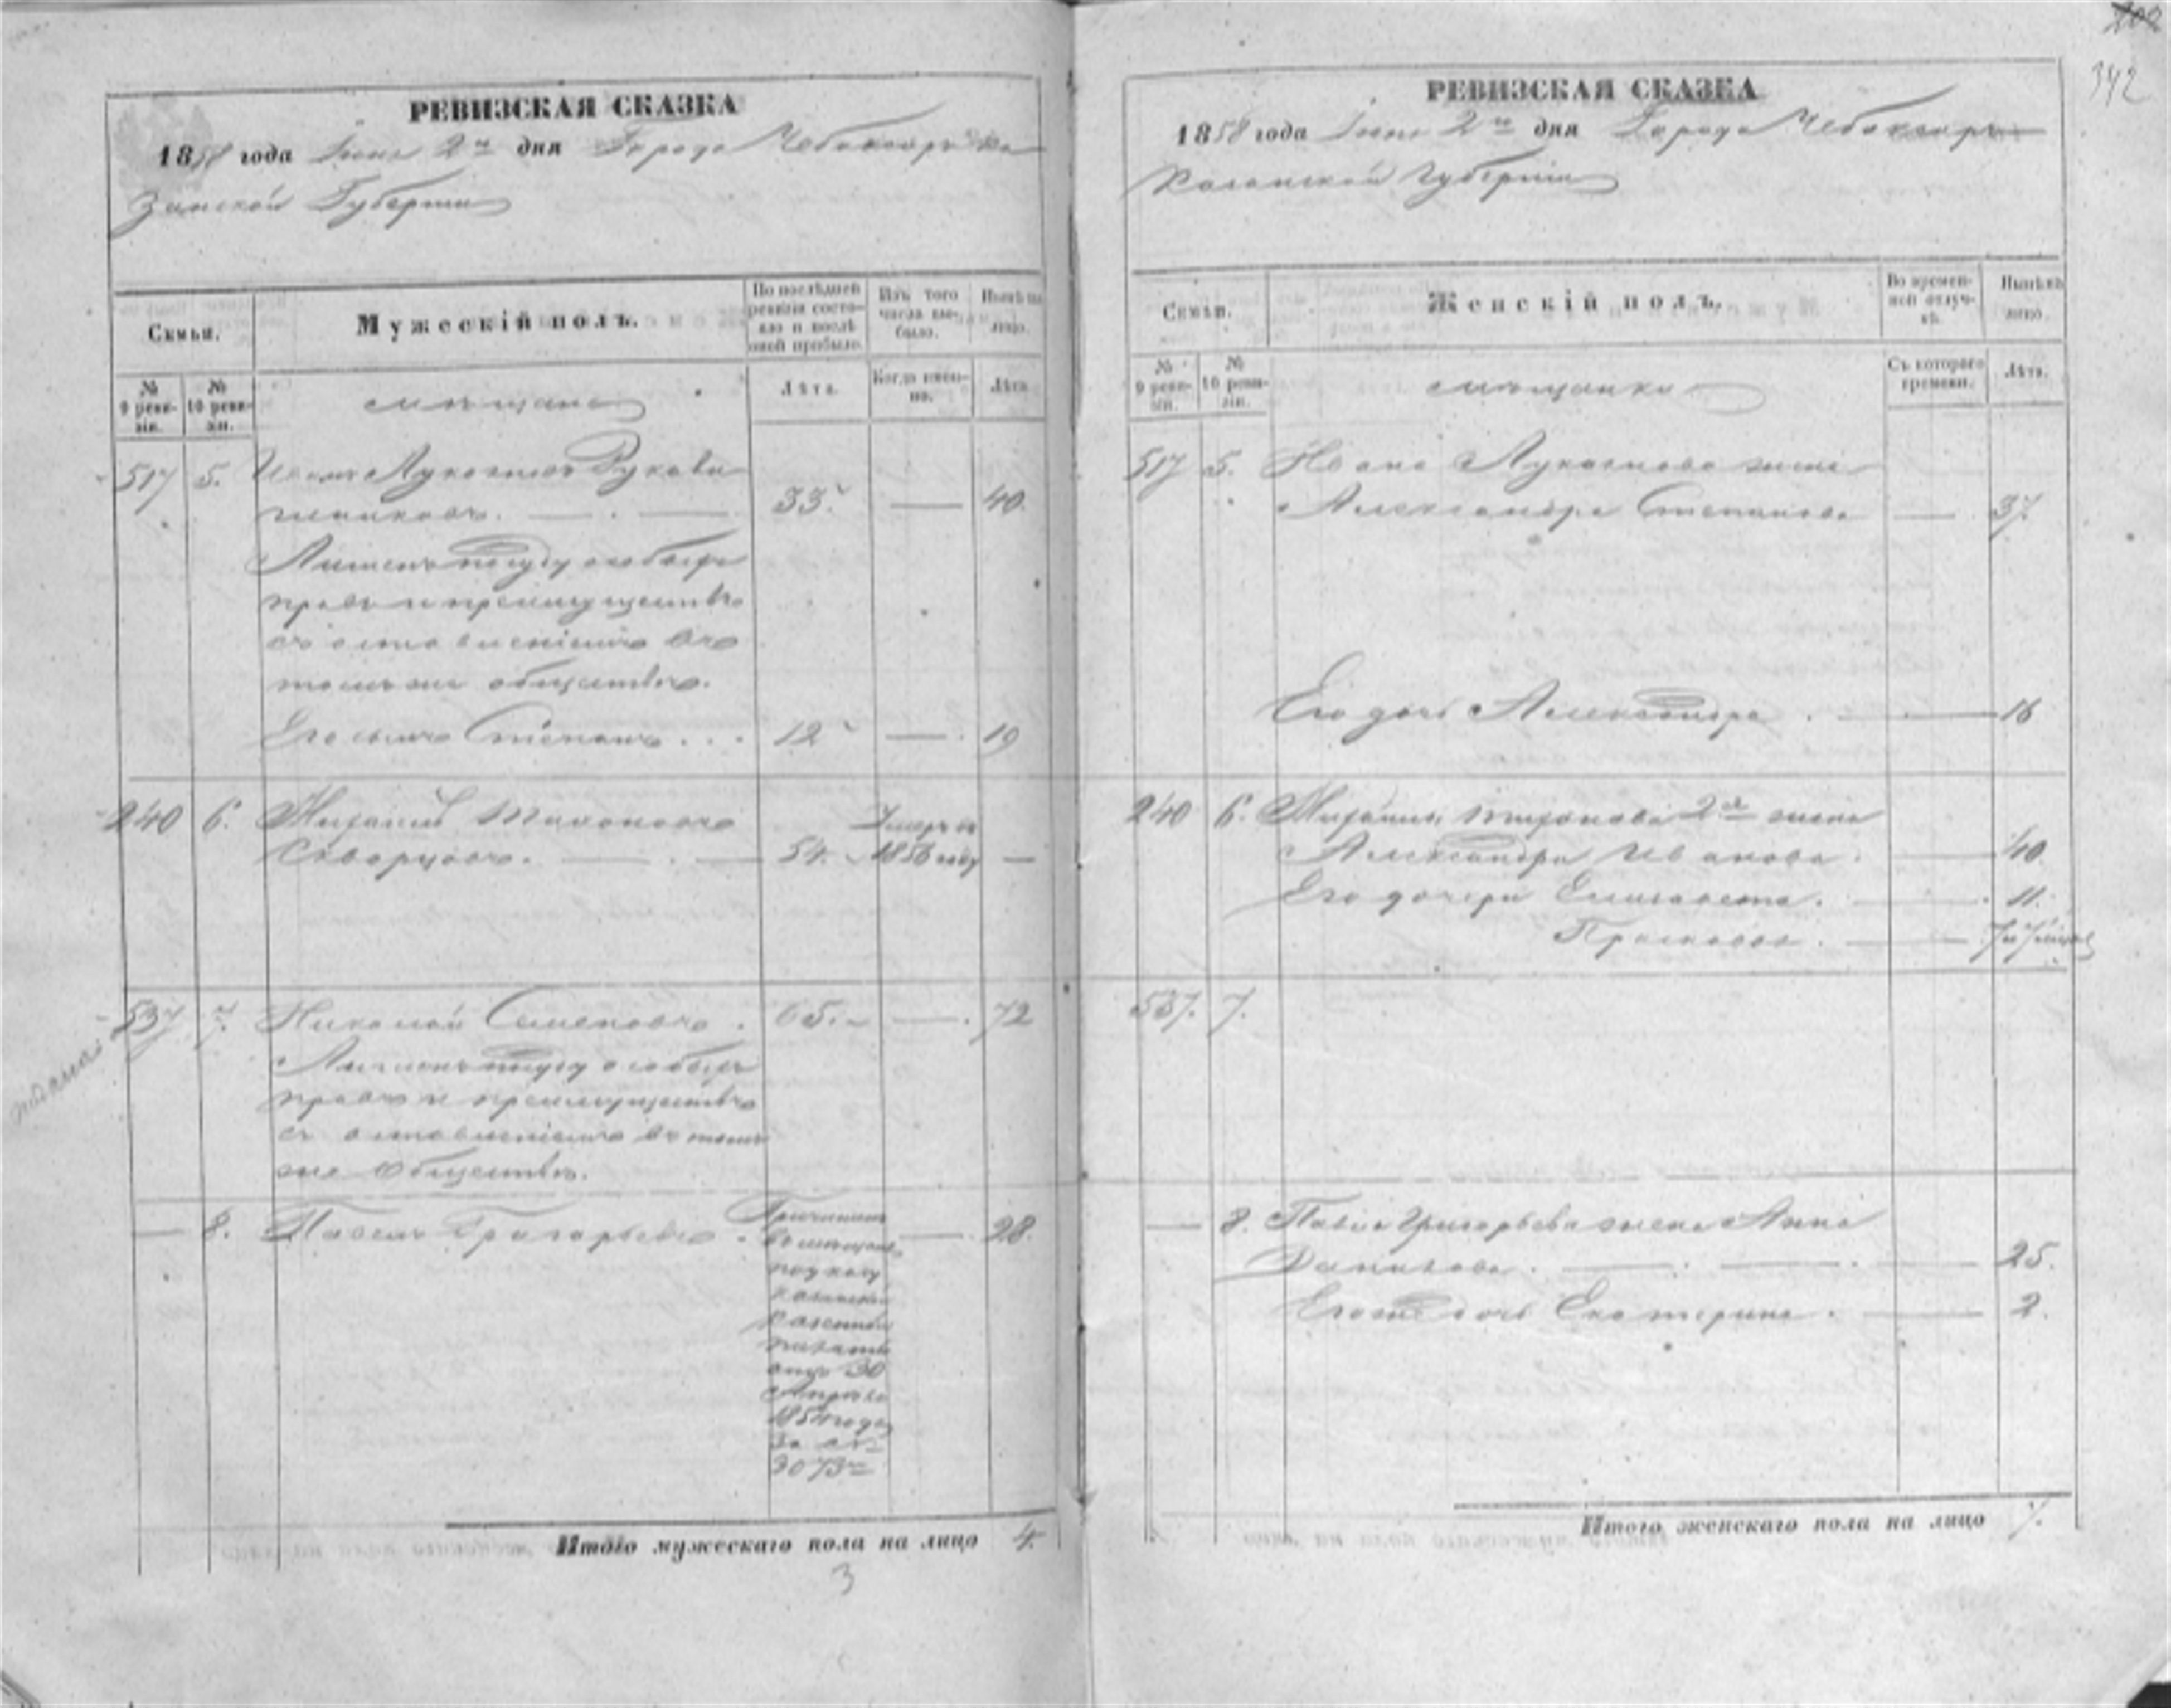 РЕВИЗСКАЯ СКАЗКА
1858 года Июня 2го дня Города Чебоксаръ Ка
занской Губерніи
Семьи.
Мужескій полъ.
По послѣдней
ревизіи состо-
яло и послѣ
оной прибыло.
Изъ того
числа вы-
было.
Нынѣ на
лицо.
№
9 реви-
зіи.
№
10 реви-
зіи.
мѣщане
Лѣта.
Когда имен-
но.
Лѣта.
517 5. Иванъ Лукояновъ Рукави
шниковъ. 33. 40.
Лишенъ по суду особыхъ
правъ и преимуществъ
съ оставленіемъ въ
томъ же обществѣ.
Его сынъ Степанъ 12 19
240 6. Михаилъ Тихоновъ
Скворцовъ. 54. Умеръ въ 1856 году
537 7. Николай Семеновъ 65. 72
Лишенъ по суду особыхъ
правъ и преимуществъ
съ оставленіемъ въ томъ
же обществѣ.
8. Павелъ Григорьевъ 28.
Причисленъ
въ мѣщане
по указу
Казанской
Казенной
Палаты
отъ 30
Апрѣля
1854 года
за №
3073м
Итого мужескаго пола на лицо 4.
3
342
РЕВИЗСКАЯ СКАЗКА
1858 года Июня 2го дня Города Чебоксаръ
Казанской Губерніи
Семьи.
Женскій полъ.
Во времен-
ной отлуч-
кѣ.
Нынѣ на
лицо.
№
9 реви-
зіи.
№
10 реви-
зіи.
мѣщанки
Съ котораго
времени.
Лѣта.
517 5. Ивана Лукоянова жена
Александра Степанова 37.
Его дочь Александра 16
240 6. Михаила Тихонова 2я жена
Александра Иванова 40
Его дочери Елизавета. 11.
Прасковья. 7 и 7 мѣсяц
537. 7.
8. Павла Григорьева жена Анна
Данилова. 25.
Его же дочь Екатерина. 2.
Итого женскаго пола на лицо 7.